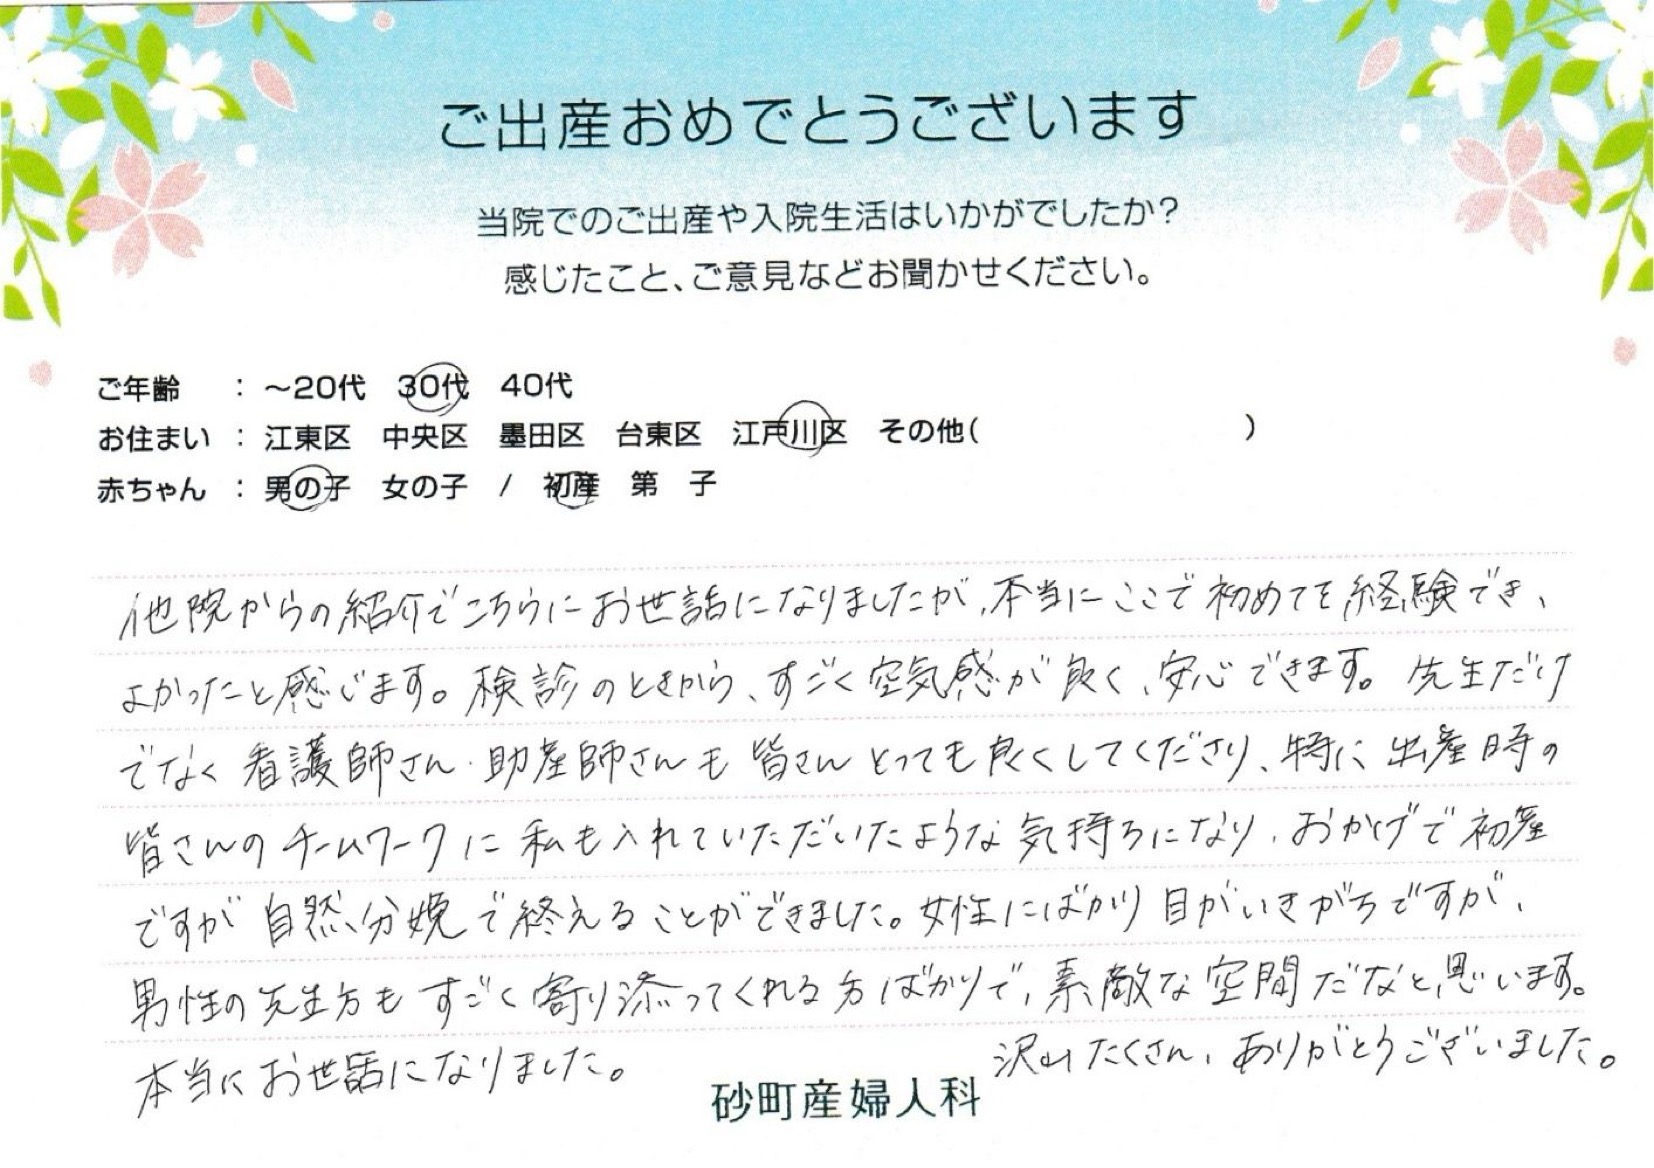 ご出産おめでとうございます
当院でのご出産や入院生活はいかがでしたか?
感じたこと、ご意見などお聞かせください。
ご年齢 : ～20代 30代 40代
お住まい : 江東区 中央区 墨田区 台東区 江戸川区 その他( )
赤ちゃん : 男の子 女の子 / 初産 第 子
他院からの紹介でこちらにお世話になりましたが、本当にここで初めてを経験でき、
よかったと感じます。検診のときから、すごく空気感が良く、安心できます。先生だけ
でなく看護師さん・助産師さんも皆さんとっても良くしてくださり、特に出産時の
皆さんのチームワークに私も入れていただいたような気持ちになり、おかげで初産
ですが自然分娩で終えることができました。女性にばかり目がいきがちですが、
男性の先生方もすごく寄り添ってくれる方ばかりで、素敵な空間だなと思います。
本当にお世話になりました。 沢山たくさん、ありがとうございました。
砂町産婦人科